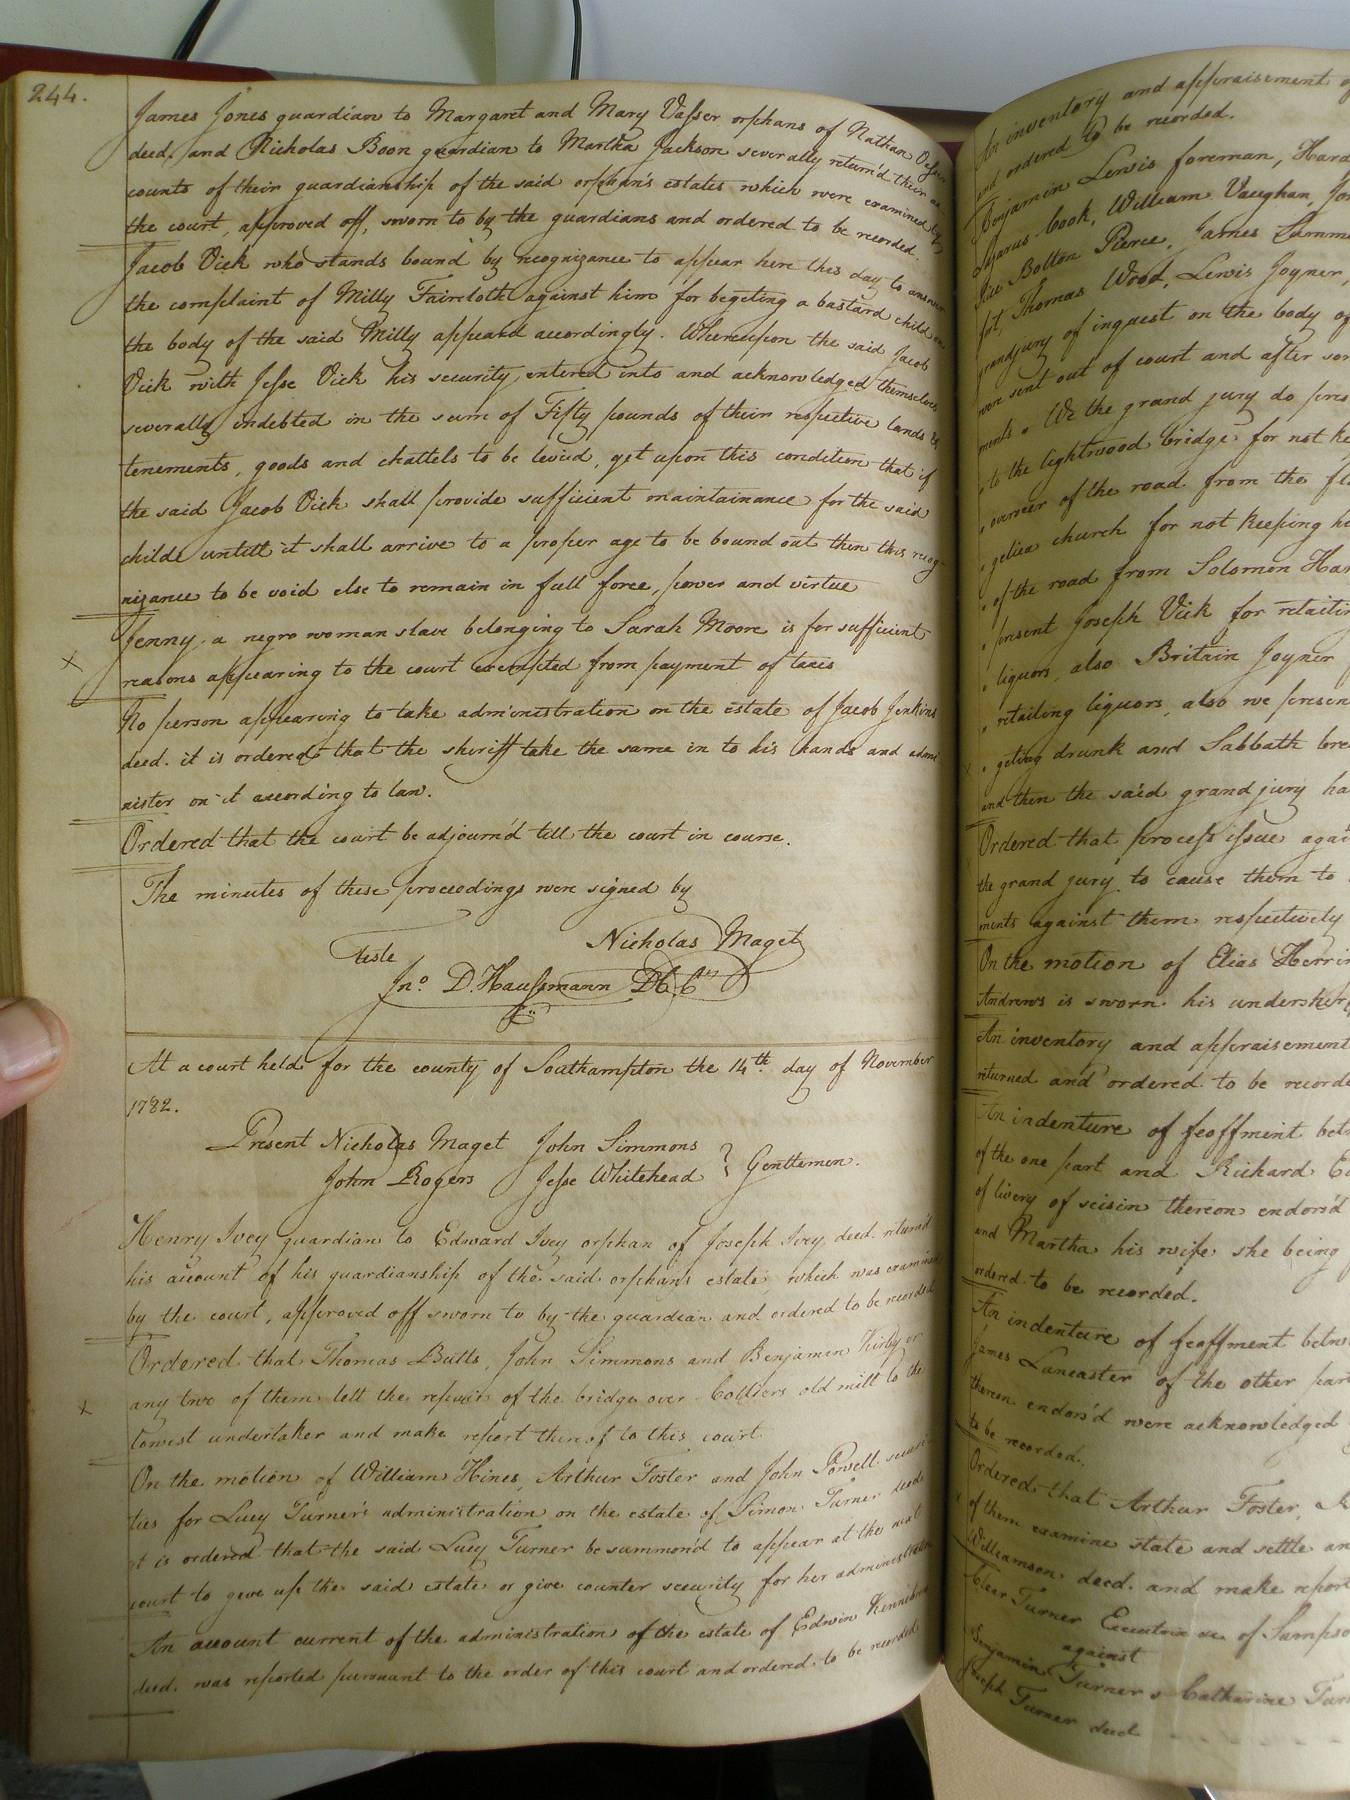 244.
James Jones guardian to Margaret and Mary Vasser orphans of Nathan Vasser
deed. and Nicholas Boon guardian to Martha Jackson severally return'd their ac-
counts of their guardianship of the said orphan's estates which were examined by
the court, approved off, sworn to by the guardians and ordered to be recorded.
Jacob Vick who stands bound by recognizance to appear here this day to answer
the complaint of Milly Faircloth against him for begeting a bastard child on
the body of the said Milly appeard accordingly. Whereupon the said Jacob
Vick with Jesse Vick his security, entered into and acknowledged themselves
severally indebted in the sum of Fifty pounds of their respective lands &
tenements, goods and chattels to be levied, yet upon this condition that if
the said Jacob Vick shall provide sufficient maintainance for the said
childe untill it shall arrive to a proper age to be bound out then this recog-
nizance to be void else to remain in full force, power and virtue
Jenny a negro woman slave belonging to Sarah Moore is for sufficient
x reasons appearing to the court exempted from payment of taxes
No person appearing to take administration on the estate of Jacob Jenkins
deed. it is ordered that the sheriff take the same in to his hands and admi
nister on it according to law.
Ordered that the court be adjourn'd till the court in course.
The minutes of these proceedings were signed by
Nicholas Maget
teste
Jno. D. Haussmann
At a court held for the county of Southampton the 14th day of November
1782.
Present Nicholas Maget John Simmons
John Rogers Jesse Whitehead } Gentlemen.
Henry Ivey guardian to Edward Ivey orphan of Joseph Ivey deed. return'd
his account of his guardianship of the said orphan's estate, which was examined
by the court, approved off sworn to by the guardian and ordered to be recorded
Ordered that Thomas Butts, John Simmons and Benjamin Kirby or
x any two of them lett the repair of the bridge over Colliers old mill to the
lowest undertaker and make report thereof to this court
On the motion of William Hines, Arthur Foster and John Powell securi-
ties for Lucy Turner's administration on the estate of Simon Turner deed
it is ordered that the said Lucy Turner be summon'd to appear at the next
court to give up the said estate or give counter security for her administration
An account current of the administration of the estate of Edwin
deed. was reported pursuant to the order of this court and ordered to be recorded
An inventory and appraisement of
and ordered to be recorded.
Benjamin Lewis foreman, Hard
Lazarus Cook, William Vaughan, Jo
Rice Bolton Pierce, James Summe
fort, Thomas Wood, Lewis Joyner,
grandjury of inquest on the body of
were sent out of court and after som
ments. We the grand jury do pres
to the lightwood bridge for not ke
overseer of the road from the fl
gelica church for not keeping hi
of the road from Solomon Har
present Joseph Vick for retailing
liquors, also Britain Joyner f
retailing liquors, also we presen
x geting drunk and Sabbath bre
and then the said grand jury ha
Ordered that process issue agai
the grand jury to cause them to
ments against them respectively
On the motion of Elias Herrin
Andrews is sworn his undersher
An inventory and appraisement
returned and ordered to be recorde
An indenture of feoffment bet
of the one part and Richard
of livery of seisin thereon endors'd
and Martha his wife she being
ordered to be recorded.
An indenture of feoffment betw
James Lancaster of the other par
thereon endors'd were acknowledged
to be recorded.
Ordered that Arthur Foster,
of them examine state and settle an
Williamson deed. and make repor
Turner Executrix &c of Sampso
against
Benjamin Turner & Catharine Tur
Joseph Turner deed